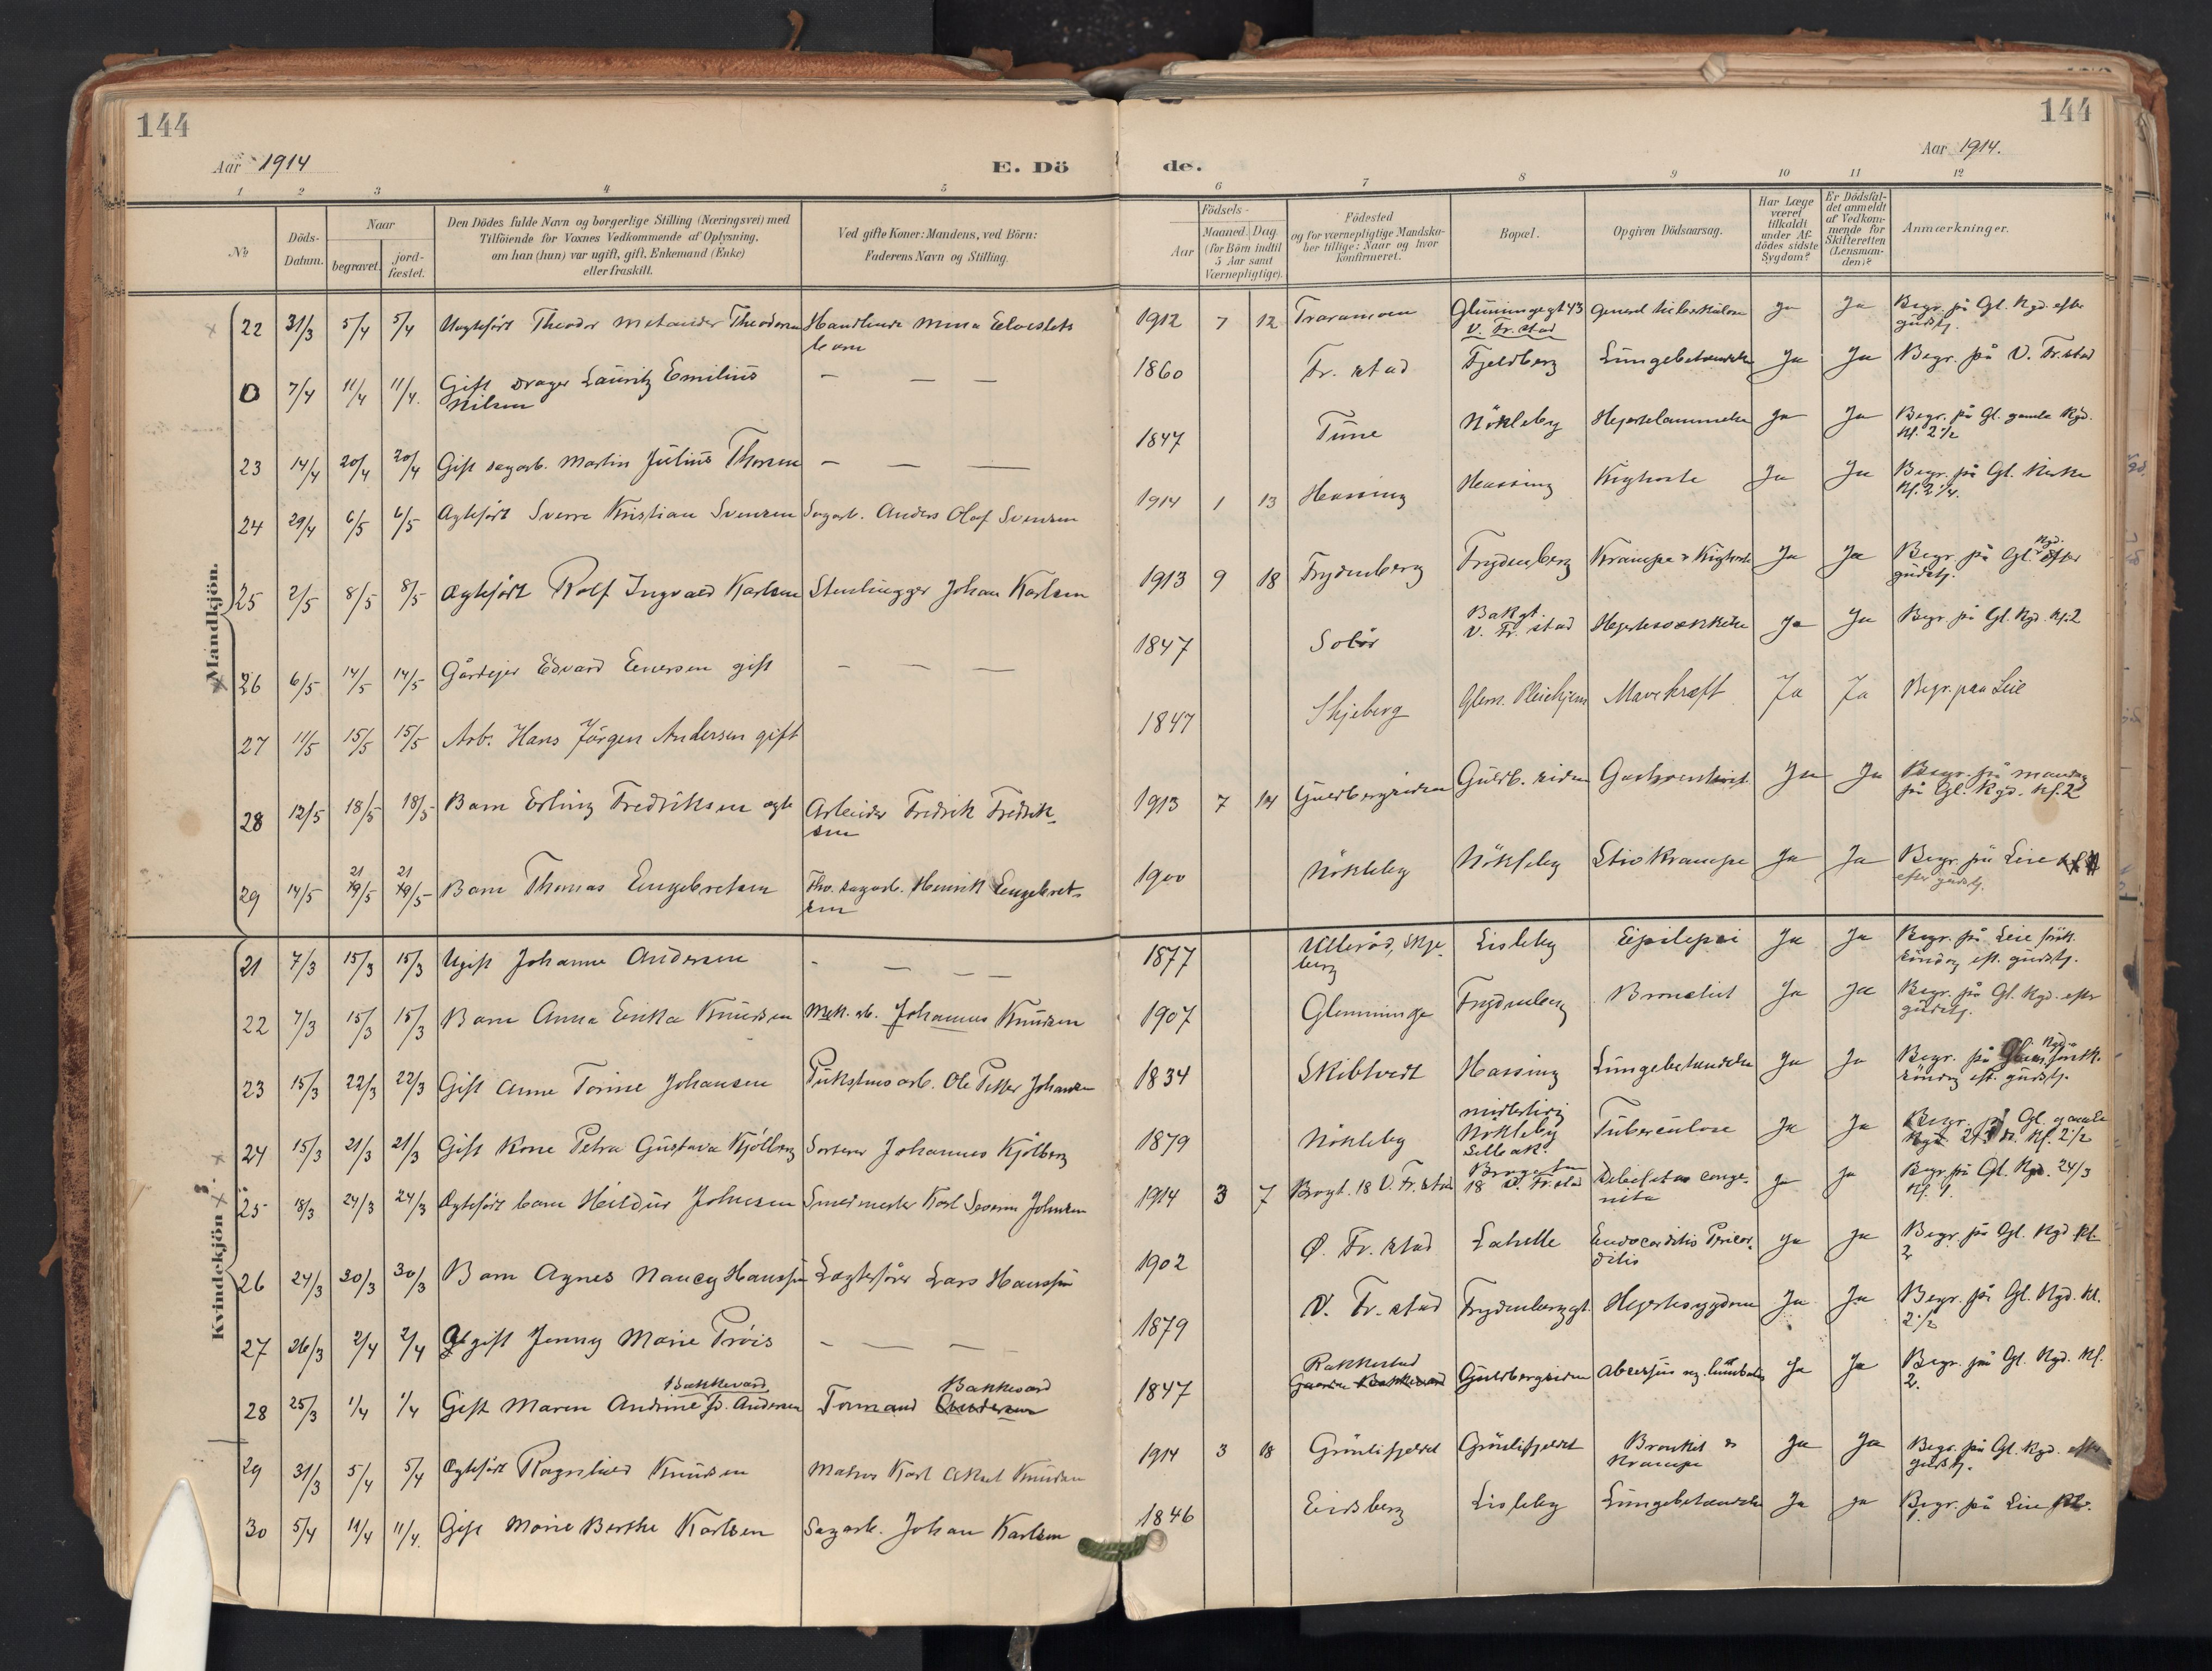 144
144
Aar 1914
E. Dö
de.
Aar 1914.
1 2 3 4 5 6 7 8 9 10 11 12
№
Döds-Datum.
Naar
begravet.
jord-fæstet.
Den Dödes fulde Navn og borgerlige Stilling (Næringsvei) med
Tilföiende for Voxnes Vedkommende af Oplysning,
om han (hun) var ugift, gift, Enkemand (Enke)
eller fraskilt.
Ved gifte Koner: Mandens, ved Börn:
Faderens Navn og Stilling.
Födsels-
Aar
Maaned. Dag
(for Börn indtil
5 Aar samt
Værnepligtige).
Födested
og for værnepligtige Mandska-
ber tillige: Naar og hvor
Konfirmeret.
Bopæl.
Opgiven Dödsaarsag.
Har Læge
været
tilkaldt
under Af-
dödes sidste
Sygdom?
Er Dödsfal-
det anmeldt
af Vedkom-
mende for
Skifteretten
(Lensman-
den)?
Anmærkninger.
Mandkjön.
22 31/3 5/4 5/4 Uægtefødt Theodor 1912 7 12 Glemmingegt 43 V. Fr.stad Ja Ja Begr. på Gl. Kgd. efter gudstj.
0 7/4 11/4 11/4. Gift Drager Lauritz Emilius Nilsen — — — 1860 Fr. stad Fjeldberg Lungebetændelse Ja Ja Begr. på V. Fr.stad
23 14/4 20/4 20/4 Gift sagarb. Martin Julius Thorsen — — — 1847 Tune Nökleby Hjertelammelse Ja Ja Begr. på Gl. gamle Kgd. Kl. 2 1/2
24 29/4 6/5 6/5 Ægtefödt Sverre Kristian Svensen Sagarb. Anders Olaf Svensen 1914 1 13 Hassing Hassing Kighoste Ja Ja Begr. på Gl. Kirke Kl. 2 1/4.
25 2/5 8/5 8/5 Ægtefödt Rolf Ingvald Karlsen Stenhugger Johan Karlsen 1913 9 18 Frydenberg Frydenberg Krampe & Kighoste Ja Ja Begr. på Gl. Kgd. efter gudstj.
26 6/5 14/5 14/5 Gårdejer Edvard Enersen gift — — — 1847 Solör Bakgt. V. Fr. stad Hjertesvækkelse Ja Ja Begr. på Gl. Kgd. Kl. 2
27 11/5 15/5 15/5 Arb. Hans Jörgen Andersen gift 1847 Skjeberg Glem. Pleiehjem Mavekræft Ja Ja Begr. paa Leie
28 12/5 18/5 18/5 Barn Erling Fredriksen ægte Arbeider Fredrik Fredriksen 1913 7 14 Guldbergsiden Guldb. siden Ja Ja Begr. på mandag på Gl. Kgd. Kl. 2
29 14/5 21/5 21/5 Barn Thomas Engebretsen Fhv. sagarb. Henrik Engebretsen 1900 Nökleby Nökleby Krampe Ja Ja Begr. på Leie efter gudstj.
Kvindekjön
21 7/3 15/3 15/3 Ugift Johanne Andersen — — — — 1877 Ulleröd, Skjeberg Lisleby Epilepsi Ja Ja Begr. på Leie förstk. söndag eft. gudstj.
22 7/3 15/3 15/3 Barn Anna Erika Knudsen Mek. arb. Johannes Knudsen 1907 Glemminge Frydenberg Bronchit Ja Ja Begr. på Gl. Kgd. efter gudstj.
23 15/3 22/3 22/3 Gift Anne Torine Johansen Pukstensarb. Ole Petter Johansen 1834 Skibtvedt Hassing Lungebetændelse Ja Ja Begr. på Kgd. förstk. söndag eft. gudstj.
24 15/3 21/3 21/3 Gift Kone Petra Gustava Kjölberg Sorterer Johannes Kjölberg 1879 Nökleby midlertidig Nökleby Selbak. Tuberculose Ja Ja Begr. på Gl. gamle Kgd. Kl. 2 1/2
25 18/3 24/3 24/3 Ægtefödt barn Heildur Johnsen Smedmester Karl Severin Johnsen 1914 3 7 Brogt. 18 V. Fr. stad Brogaten 18 V. Fr.stad Debilitas congenita Ja Ja Begr. på Gl. Kgd. 24/3 Kl. 1.
26 24/3 30/3 30/3 Barn Agnes Nancy Hanssen Lægterförer Lars Hanssen 1902 Ø. Fr. stad Lahelle Endocarditis Pericarditis Ja Ja Begr. på Gl. Kgd Kl. 2
27 26/3 2/4 2/4 Ugift Jenny Marie Tröis — — — — 1879 V. Fr. stad Frydenberggt. Hjertesygdom Ja Ja Begr. på Gl. Kgd. Kl. 2 1/2
28 25/3 1/4 1/4 Gift Maren Andrine Bakkevard Andersen Formand Bakkevard Andersen 1847 Rakkestad Guldbergsiden Ja Ja Begr. på Gl. Kgd. Kl. 2.
29 31/3 5/4 5/4 Ægtefödt Ragnhild Knudsen Matros Karl Aksel Knudsen 1914 3 18 Grönlifjeldet Grönlifjeldet Bronkit & Krampe Ja Ja Begr. på Gl. Kgd. efter gudstj.
30 5/4 11/4 11/4. Gift Marie Berthe Karlsen Sagarb. Johan Karlsen 1846 Eidsberg Lisleby Lungebetændelse Ja Ja Begr. på Leie